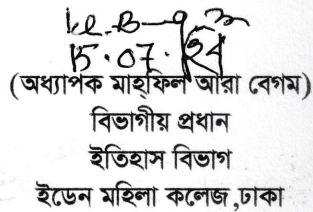 15.07.
(অধ্যাপক মাহফিল আরা বেগম)
বিভাগীয় প্রধান
ইতিহাস বিভাগ
ইডেন মহিলা কলেজ,ঢাকা